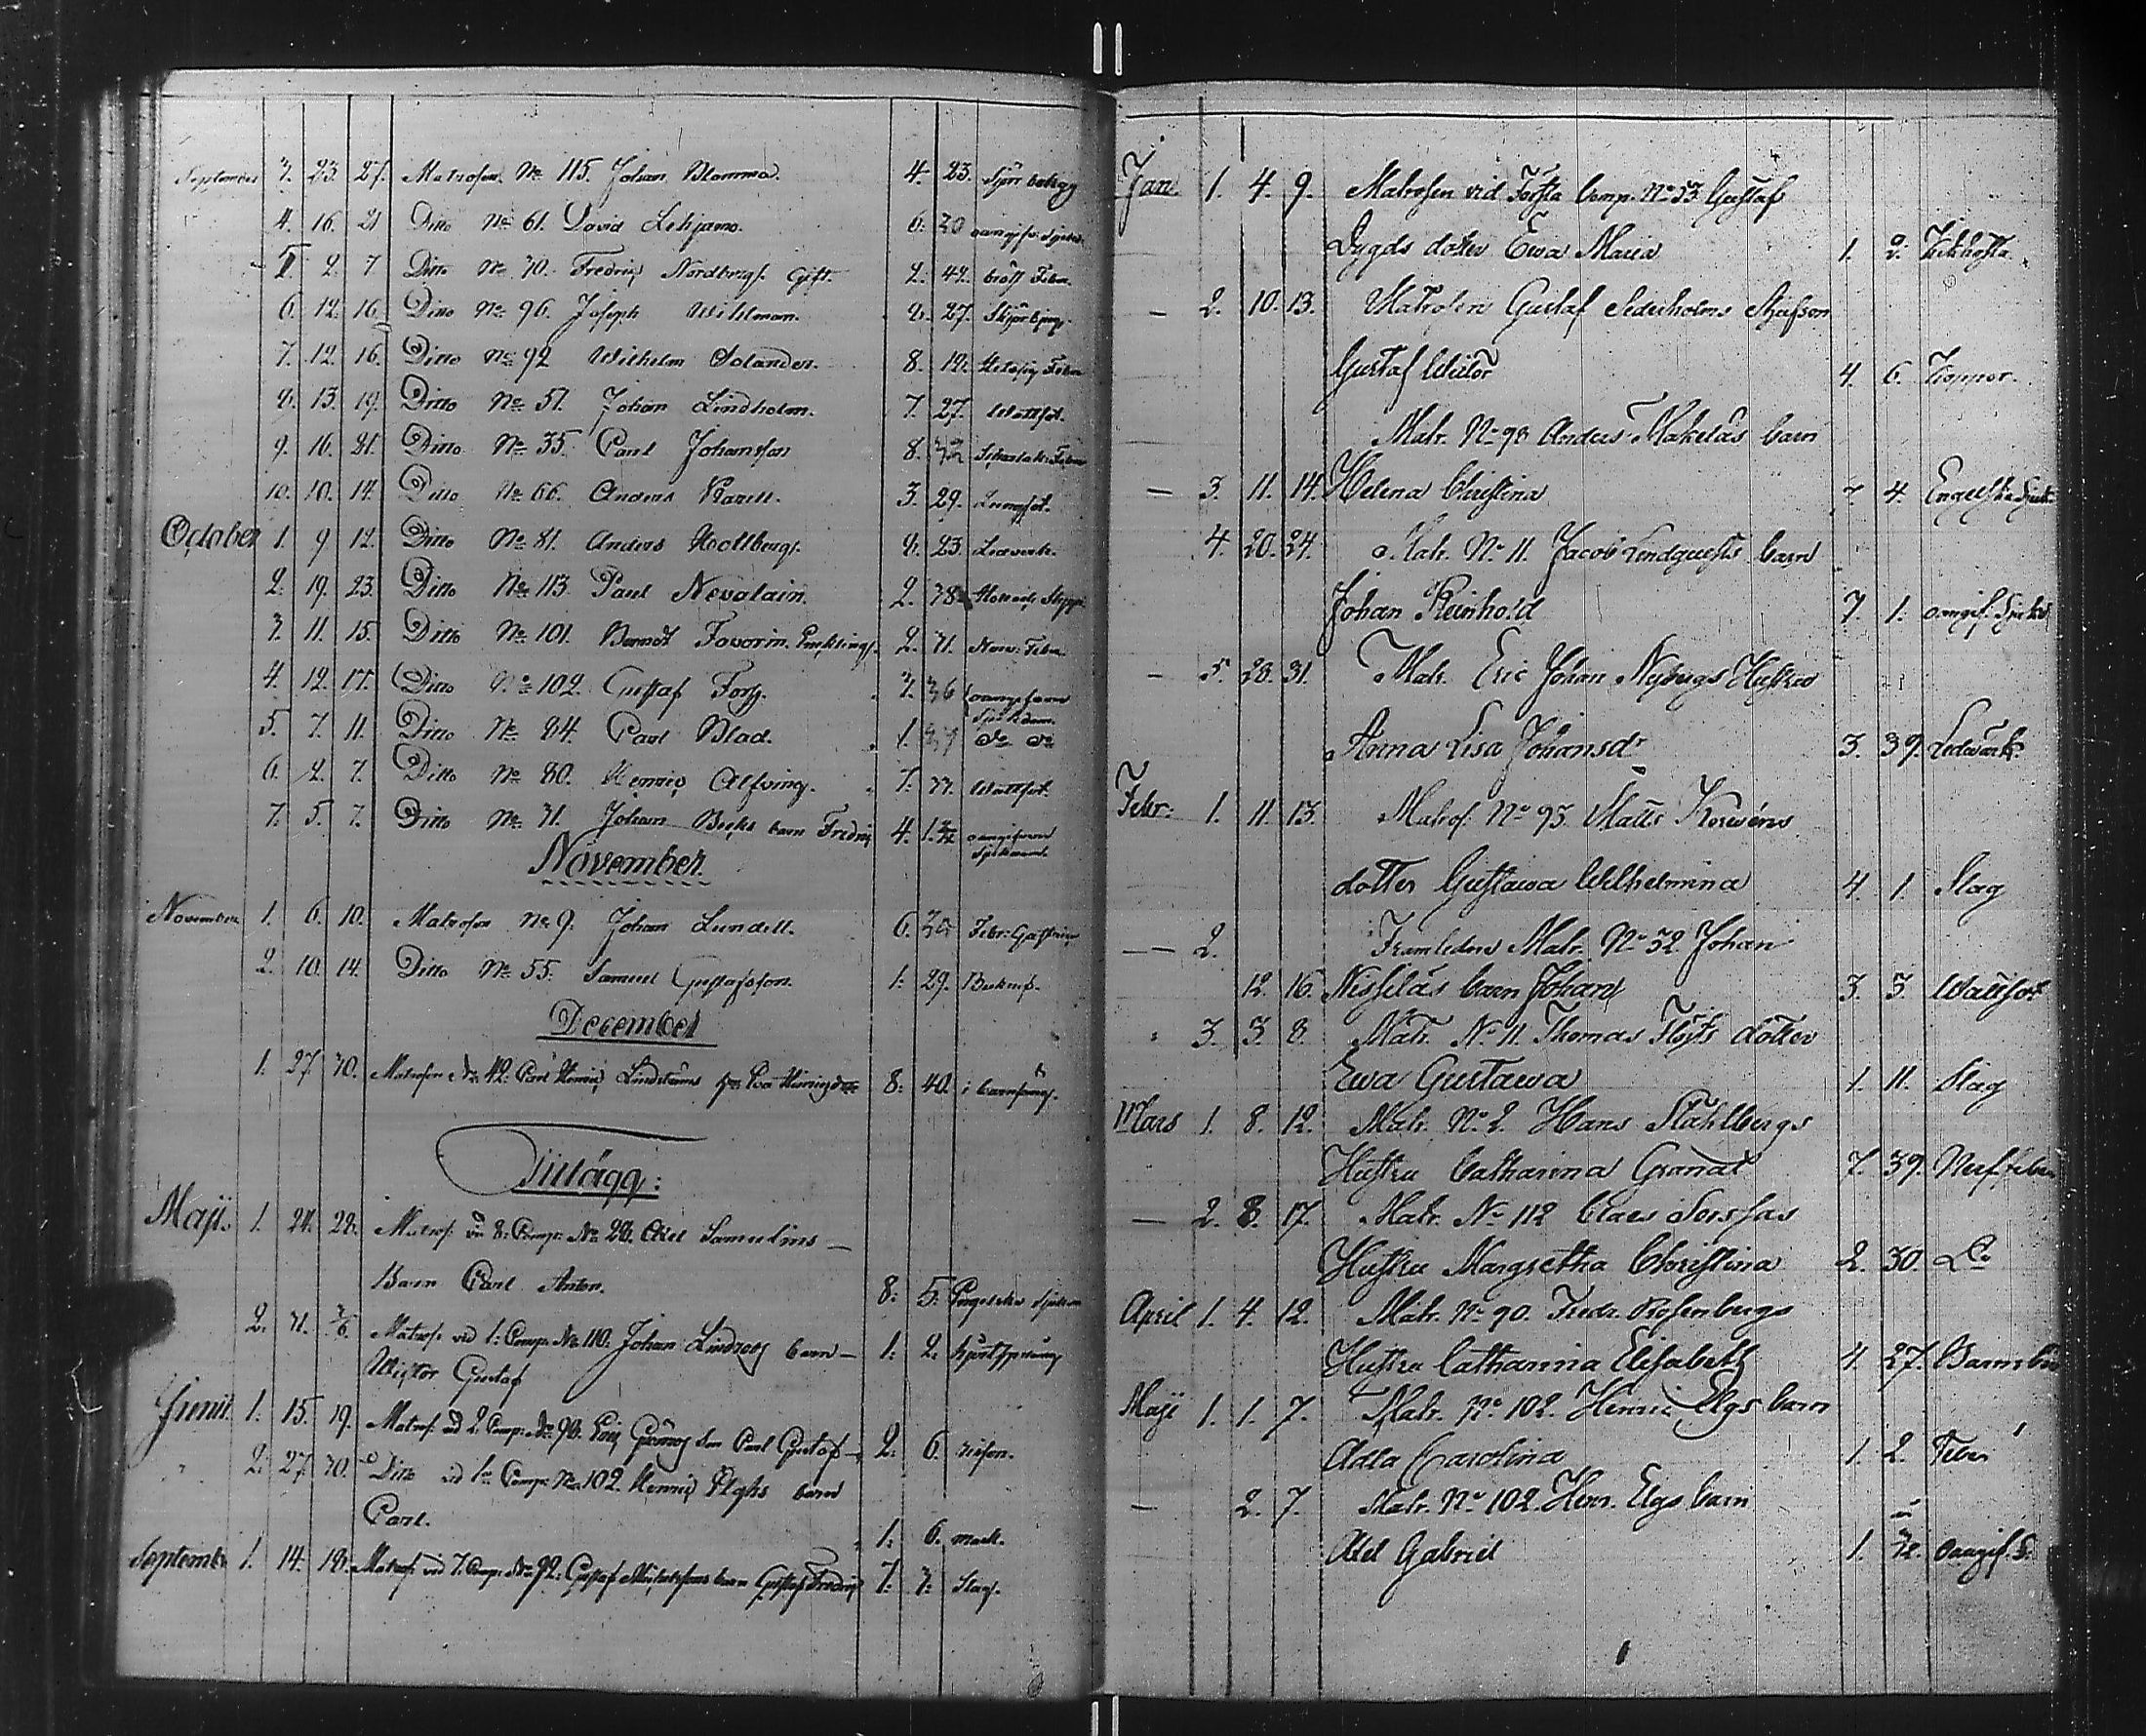 September 3. 23. 27. Matrosen No 115. Johan Blomma. 4. 23. Skjörbekugg
4. 16. 21 Ditto No 61. David Lehjamo. 6. 30 oangifv: Sjukd.
2. 7 Ditto No 70. Fredric Nordberg. Gift. 2. 42. bröst Feber.
6. 12. 16. Ditto No 96. Joseph Wildman. 2. 27.
7. 12. 16. Ditto No 92 Wilhelm Solander. 8. 19. Hetsig Feber
8. 13. 19. Ditto No 51. Johan Lindholm. 7. 27. Wattsot.
9. 16. 21. Ditto No 35. Carl Johansson 8. 32
10. 10. 14. Ditto No 66. Anders 3. 29. Lungsot.
October 1. 9 12. Ditto No 81. Anders Hollberg. 2. 23. Ledverk.
2. 19. 23. Ditto No 113 Paul Nevalain. 2. 38
3. 11. 15. Ditto No 101. Berndt Favorin. 2. 31. Nerv: Feber
4. 12. 17. Ditto No 102. Gustaf Fors. 3. 36 oangifven
Sjukdom.
5. 7. 11. Ditto No 84. Carl Blad. 1. 37 do do
6. 2. 7. Ditto No 80. Henric Alfving. 7. 33. Wattsot.
7. 5. 7. Ditto No 31. Johan Becks barn Fredric 4. 1. oangifven
Sjukdom.
November.
November 1. 6. 10. Matrosen No 9. Johan Lundell. 6. 30 Febr: Gastrica
2. 10. 14. Ditto No 55. Samuel Gustafsson. 1. 29.
December
1. 27. 30. Matrosen No 42. Carl Henric Lindströms 8. 40. i barnsäng.
Tillägg:
Maji. 1. 24. 28. Matros. vid 8: Comp: No 28. Axel Samulins
Barn Carl Anton. 8: 5: Engelska sjukan
2. 31. 3/6. Matros. vid 1: Comp: No 110. Johan Lindroos barn 1: 2: hjertsprång
Wictor Gustaf
Junii. 1. 15. 19. Matros: vid 2. Comp: No 90. Eric son Carl Gustaf 2: 6.
2. 27 30. Ditto vid 1: Comp: No 102. Henric Elghs barn
Carl. 1: 6. mask.
September 1. 14. 18. Matros: vid 7. Comp: No 92. Gustaf barn Gustaf Fredric 7: 3: Slag.
Jan. 1. 4. 9. Matrosen vid Första Comp. No 53 Gustaf
Dygds dotter Ewa Maria 1. 2. Kikhosta
2. 10. 13. Matrosen Gustaf Sederholms Styfson
Gustaf Wictor 4. 6. Koppor.
Matr. No 98 Anders Makeläs barn
3. 11. 14. Helena Christina 7 4. Engelska Sjuk
4. 20. 24. Matr. No 11. Jacob Lindquists barn
Johan Reinhold 7. 1. oangif. Sjukd
5. 28. 31. Matr. Eric Johan Nybergs Hustru
Anna Lisa Johansdr 3. 39. Ledvärk
Febr: 1. 11. 13. Matros. No 95. Matts
dotter Gustawa Wilhelmina 4. 1. Slag
2. Framledne Matr. No 32 Johan
12. 16. Nissiläs barn Johan 3. 3. Wattsot
3. 3 8. Matr. No 11. Thomas Flöjts dotter
Ewa Gustawa 1. 11. Slag
Mars 1. 8. 12. Matr. No 2. Hans Ståhlbergs
Hustru Catharina Granat 7. 39. Nerf feber
2. 8. 17. Matr. No 112 Claes
Hustru Margretha Christina 2. 30. Do
April 1. 4. 12. Matr. No 90. Fredr. Rosenbergs
Hustru Catharina Elisabeth 4. 27. Barnsbö
Maji 1. 1. 7. Matr. No 102. Henric Elgs barn
Adla Carolina 1. 2. Feber
2. 7. Matr. No 102. Henr. Elgs barn
Axel Gabriel 1. oangif. S.